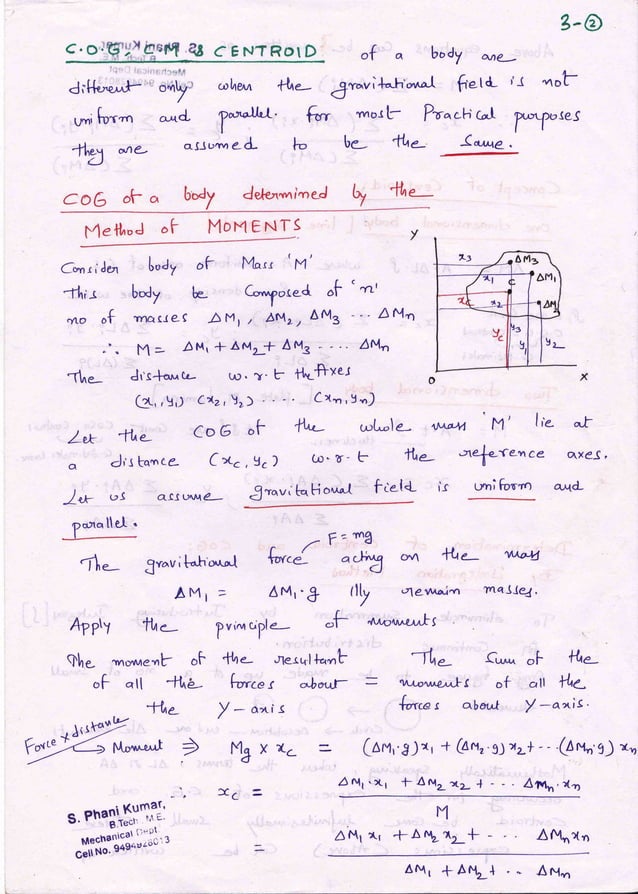 3-②
C.O.G, C.M & CENTROID of a body are
different only when the gravitational field is not
uniform and parallel. for most Practical purposes
they are assumed to be the same.
COG of a body determined by the
Method of MOMENTS
Consider body of Mass 'M'
This body be Composed of 'n'
no of masses ΔM₁, ΔM₂, ΔM₃ ... ΔMn
∴ M = ΔM₁ + ΔM₂ + ΔM₃ ..... ΔMn
The distance w.r.t the Axes
(x₁,y₁) (x₂,y₂) ..... (xn,yn)
Y
x₃ ΔM₃
x₁ ΔM₁
C
xc x₂ ΔM
yc y₃ y₁ y₂
O X
Let the COG of the whole mass 'M' lie at
a distance (xc,yc) w.r.t the reference axes.
Let us assume gravitational field is uniform and
parallel.
F = mg
The gravitational force acting on the mass
ΔM₁ = ΔM₁.g illy remain masses.
Apply the principle of moments.
The moment of the resultant The Sum of the
of all the forces about = moments of all the
the Y-axis forces about Y-axis.
Force x distance
Moment ⇒ Mg x xc = (ΔM₁.g)x₁ + (ΔM₂.g)x₂ + ... (ΔMn.g)xn
∴ xc = ΔM₁.x₁ + ΔM₂ x₂ + ... ΔMn.xn
M
= ΔM₁ x₁ + ΔM₂ x₂ + ... ΔMn xn
ΔM₁ + ΔM₂ + ... ΔMn
S. Phani Kumar,
B.Tech. M.E.
Mechanical Dept.
Cell No.